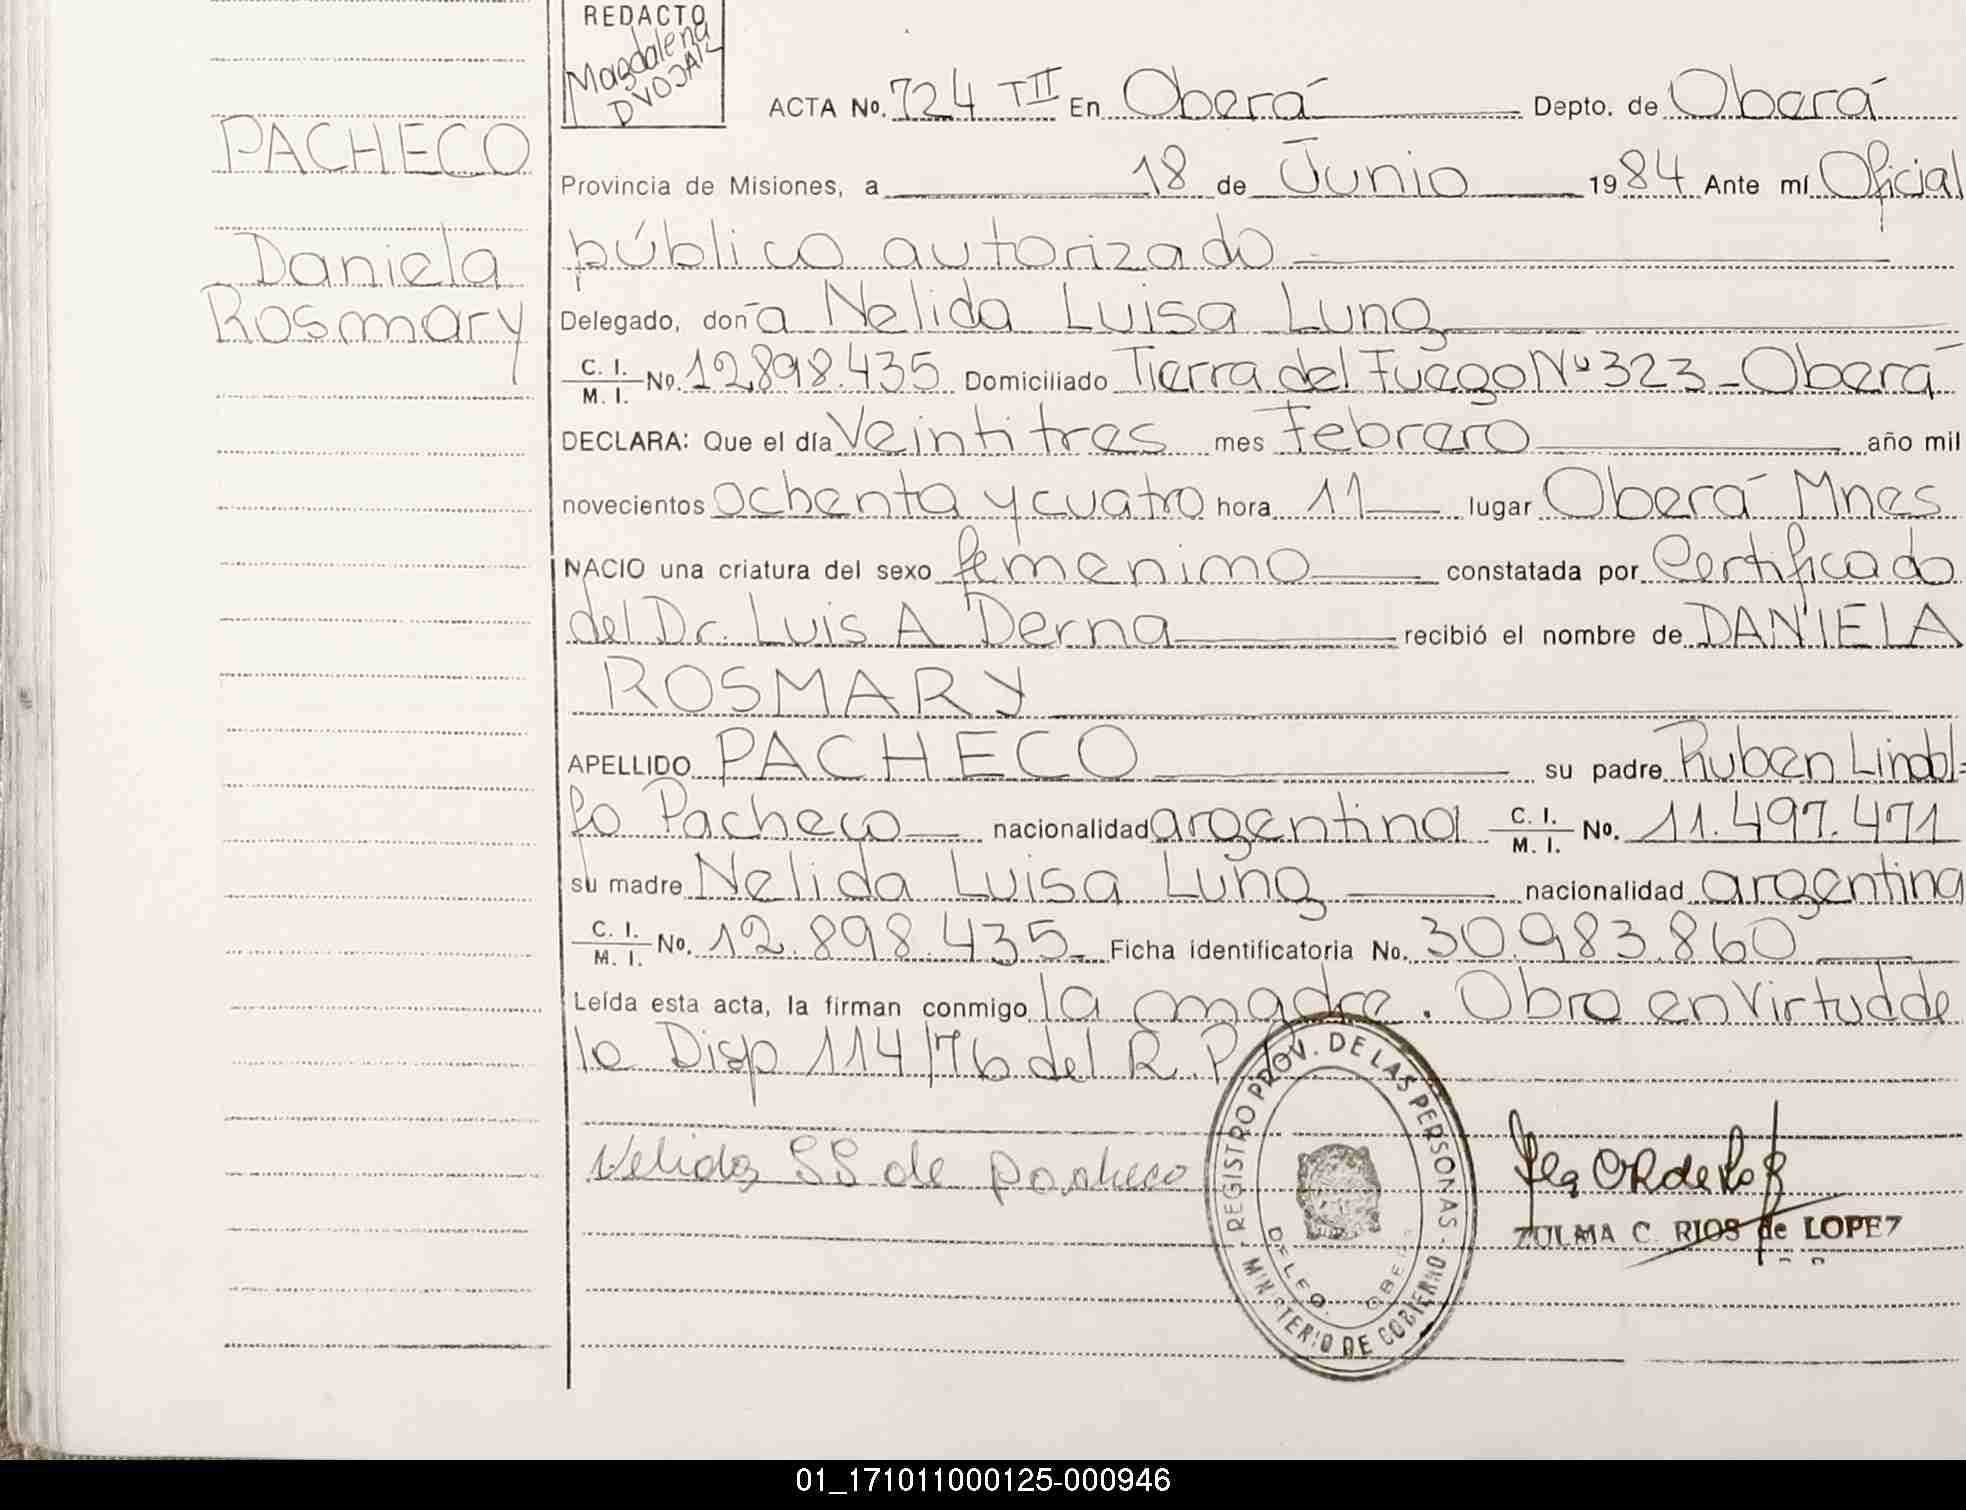 REDACTO
Magdalena
DVOJAK
PACHECO
Daniela
Rosmary
ACTA No. 724 TII En Oberá Depto. de Oberá
Provincia de Misiones, a 18 de Junio 1984 Ante mí Oficial
público autorizado
Delegado, doña Nelida Luisa Lung
C. I. / M. I. No. 12.898.435 Domiciliado Tierra del Fuego Nº 323 - Oberá
DECLARA: Que el día Veintitres mes Febrero año mil
novecientos ochenta y cuatro hora 11 lugar Oberá Mnes
NACIO una criatura del sexo femenino constatada por Certificado
del Dr. Luis A Derna recibió el nombre de DANIELA
ROSMARY
APELLIDO PACHECO su padre Ruben Lindol=
fo Pacheco nacionalidad argentina C. I. / M. I. No. 11.497.471
su madre Nelida Luisa Lung nacionalidad argentina
C. I. / M. I. No. 12.898.435 Ficha identificatoria No. 30.983.860
Leída esta acta, la firman conmigo la madre. Obro en virtud de
la Disp 114/76 del R. P.
Nelida de Pacheco
REGISTRO PROV. DE LAS PERSONAS - MINISTERIO DE GOBIERNO
DELEG. OBE
ZULMA C. RIOS de LOPEZ
01_171011000125-000946